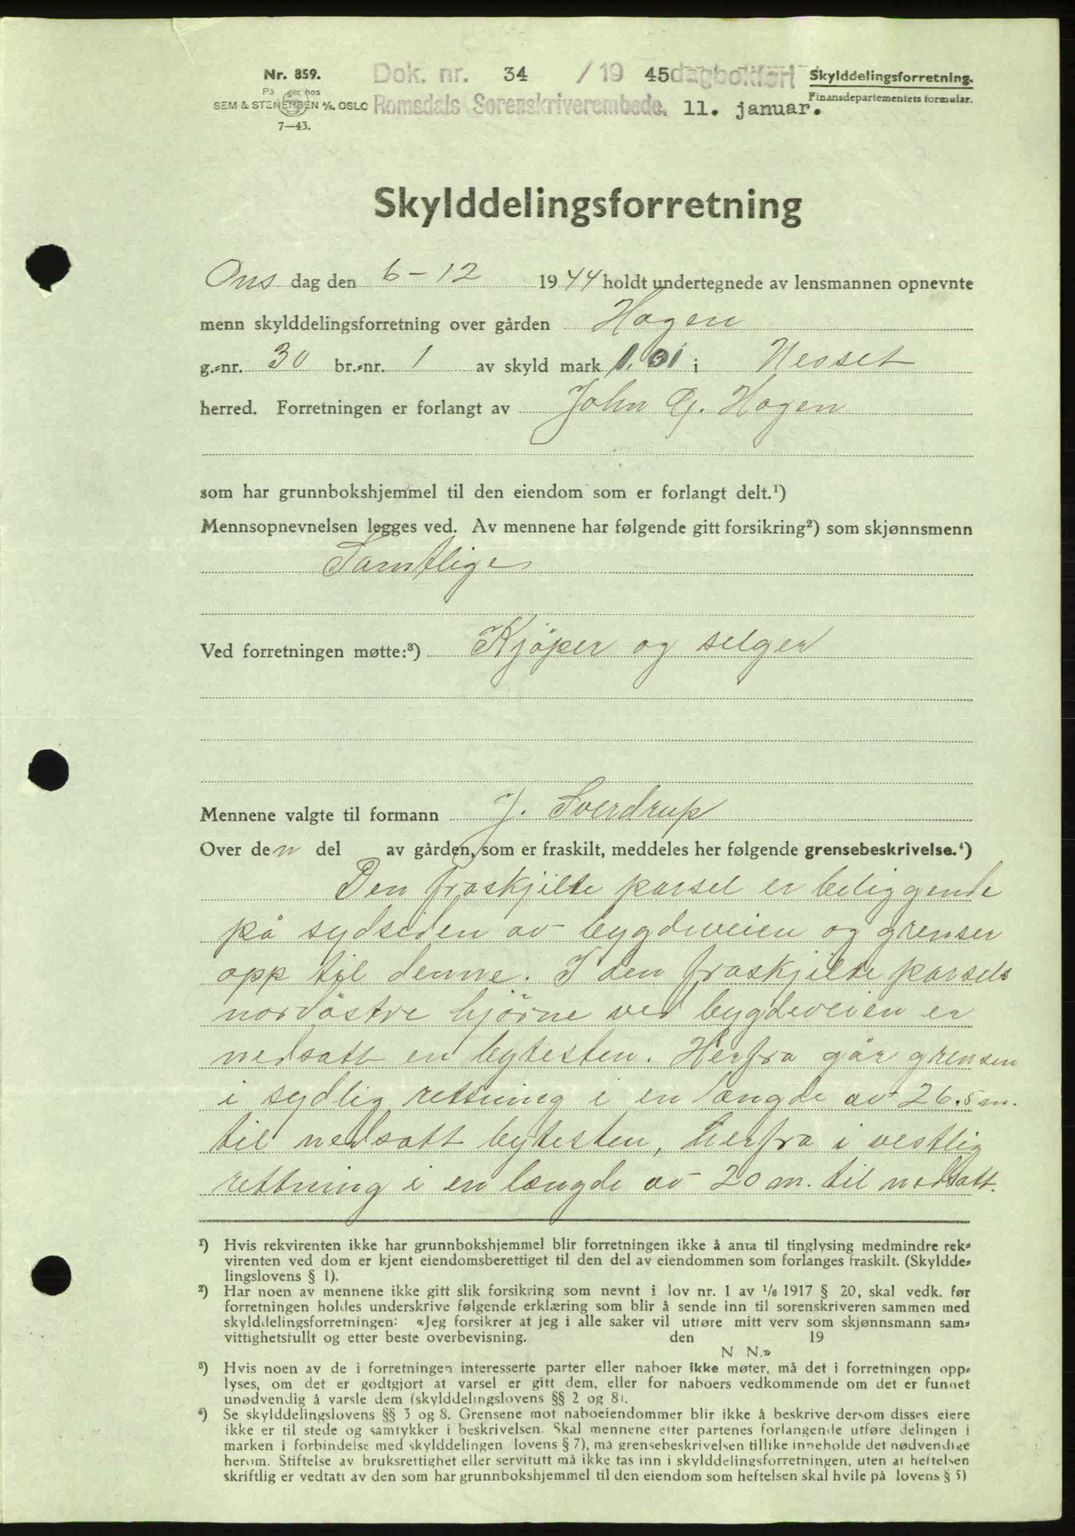 Nr. 859.
SEM & STENERSEN A/S, OSLO
7—43.
Dok. nr. 34 / 19 45 dagbokført
Romsdals Sorenskriverembede, 11. januar.
Skylddelingsforretning.
Finansdepartementets formular.
Skylddelingsforretning
Ons dag den 6-12 1944 holdt undertegnede av lensmannen opnevnte
menn skylddelingsforretning over gården Hagen
g.-nr. 30 br.-nr. 1 av skyld mark 1.01 i Nesset
herred. Forretningen er forlangt av John G. Hagen
som har grunnbokshjemmel til den eiendom som er forlangt delt.¹)
Mennsopnevnelsen legges ved. Av mennene har følgende gitt forsikring²) som skjønnsmenn
Samtlige
Ved forretningen møtte:³) Kjøper og selger
Mennene valgte til formann J. Sverdrup
Over den del av gården, som er fraskilt, meddeles her følgende grensebeskrivelse.⁴)
Den fraskjilte parsel er beliggende
på sydsiden av bygdeveien og grenser
opp til denne. I den fraskjilte parsels
nordöstre hjörne ved bygdeveien er
nedsatt en bytesten. Herfra går grensen
i sydlig rettning i en længde av 26.5 m.
til nedsatt bytesten, herfra i vestlig
rettning i en længde av 20 m. til nedsatt.
¹) Hvis rekvirenten ikke har grunnbokshjemmel blir forretningen ikke å anta til tinglysing medmindre rek-
virenten ved dom er kjent eiendomsberettiget til den del av eiendommen som forlanges fraskilt. (Skyldde-
lingslovens § 1).
²) Har noen av mennene ikke gitt slik forsikring som nevnt i lov nr. 1 av 1/6 1917 § 20, skal vedk. før
forretningen holdes underskrive følgende erklæring som blir å sende inn til sorenskriveren sammen med
skylddelingsforretningen: «Jeg forsikrer at jeg i alle saker vil utføre mitt verv som skjønnsmann sam-
vittighetsfullt og etter beste overbevisning. den 19
N N.»
³) Hvis noen av de i forretningen interesserte parter eller naboer ikke møter, må det i forretningen opp-
lyses, om det er godtgjort at varsel er gitt dem, eller for naboers vedkommende om det er funnet
unødvendig å varsle dem (skylddelingslovens §§ 2 og 8).
⁴) Se skylddelingslovens §§ 3 og 8. Grensene mot naboeiendommer blir ikke å beskrive dersom disses eiere
ikke er til stede og samtykker i beskrivelsen. Skal mennene etter partenes forlangende utføre delingen i
marken i forbindelse med skylddelingen lovens § 7), må grensebeskrivelsen tillike inneholde det nødvendige
herom. Stiftelse av bruksrettighet eller servitutt må ikke tas inn i skylddelingsforretningen, uten at heftelsen
skriftlig er vedtatt av den som har grunnbokshjemmel til den eiendom som heftelsen skal hvile på lovens § 5)